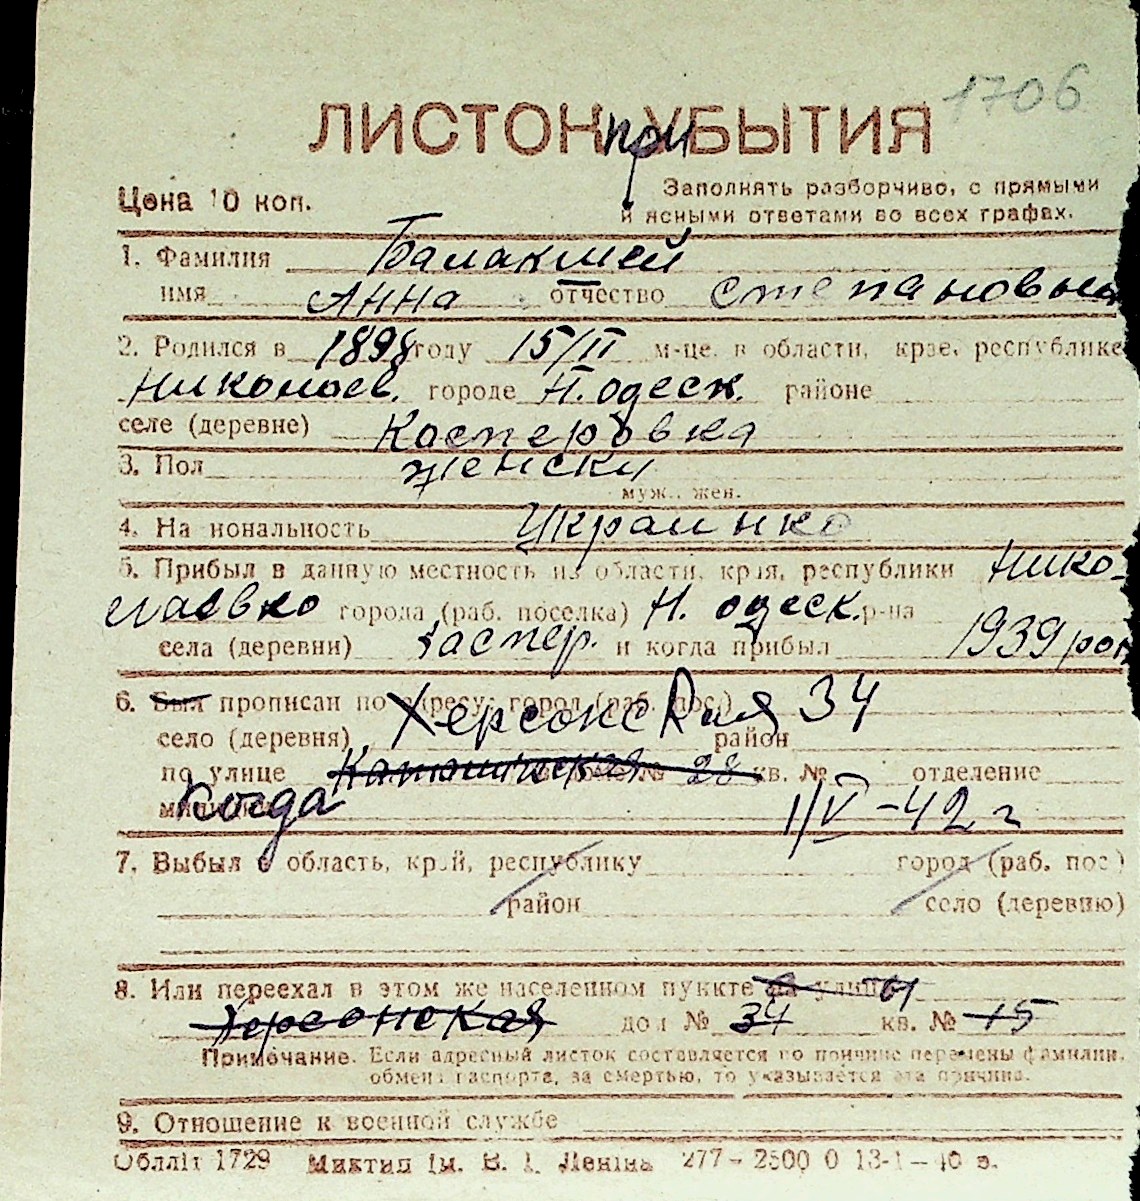 1706
ЛИСТОК при УБЫТИЯ
Цена 10 коп.
Заполнять разборчиво, с прямыми
и ясными ответами во всех графах.
1. Фамилия Балакшей
имя Анна отчество Степановна
2. Родился в 1898 году 15/II м-це, в области, крае, республике
Николаев. городе Н. одеск. районе
селе (деревне) Касперовка
3. Пол женски
муж., жен.
4. Национальность Украинка
5. Прибыл в данную местность из области, края, республики Нико-
лаевко города (раб. поселка) Н. одеск. р-на
села (деревни) Каспер. и когда прибыл 1939
6. Был прописан по адресу: город (раб. пос.) Херсонская 34
село (деревня) район
по улице 28 кв. № отделение
милиции Когда 1/V-42 г
7. Выбыл в область, край, республику город (раб. пос.)
район село (деревню)
8. Или переехал в этом же населенном пункте на улицы
Херсонская дом № 34 кв. № 15
Примечание. Если адресный листок составляется по причине перемены фамилии,
обмена паспорта, за смертью, то указывается эта причина.
9. Отношение к военной службе
Облліт 1729 Миктип ім. В. І. Леніна 277-2500 0 13-1-40 э.